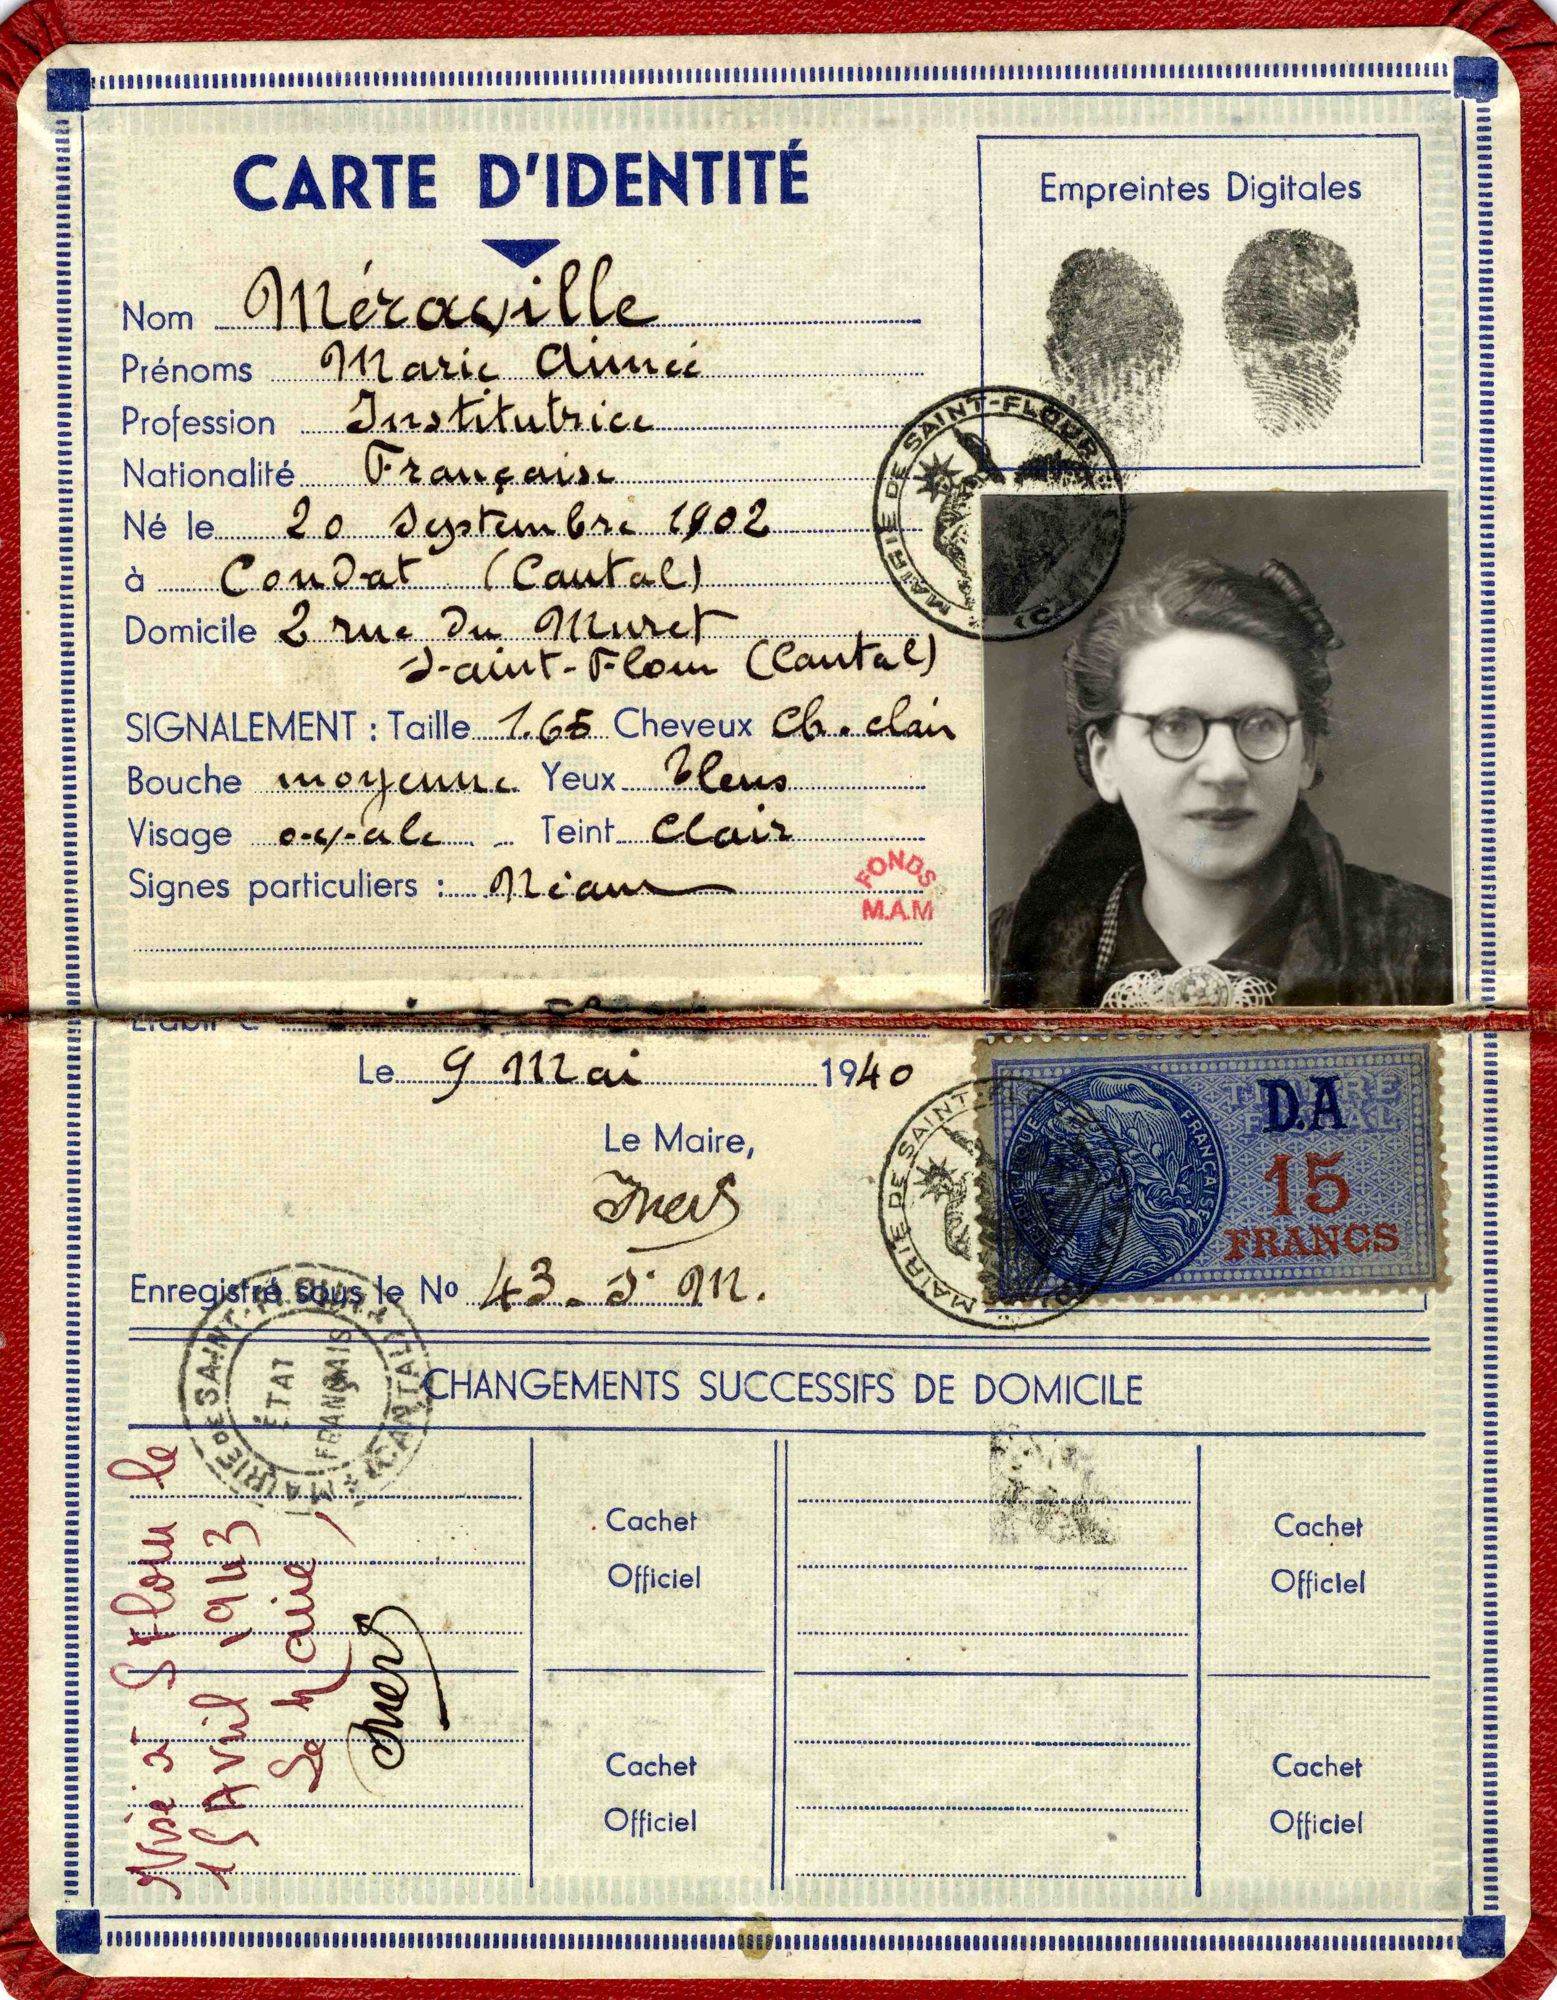 CARTE D'IDENTITÉ
Empreintes Digitales
Nom Méraville
Prénoms Marie Aimée
Profession Institutrice
Nationalité Française
Né le 20 Septembre 1902
à Condat (Cantal)
Domicile 2 rue du Muret
Saint-Flour (Cantal)
MAIRIE DE SAINT-FLOUR
SIGNALEMENT : Taille 1.65 Cheveux Ch. clair
Bouche moyenne Yeux bleus
Visage ovale Teint Clair
Signes particuliers : Néant
FONDS
M.A.M
Etabli à
Le 9 Mai 1940
Le Maire,
MAIRIE DE SAINT-
RÉPUBLIQUE FRANÇAISE
TIMBRE
FISCAL
D.A
15
FRANCS
Enregistré sous le No 43. S. M.
MAIRIE DE SAINT-FLOUR * (CANTAL) *
ÉTAT
FRANÇAIS
CHANGEMENTS SUCCESSIFS DE DOMICILE
Visé à St Flour le
15 Avril 1943
Le Maire,
Cachet
Officiel
Cachet
Officiel
Cachet
Officiel
Cachet
Officiel